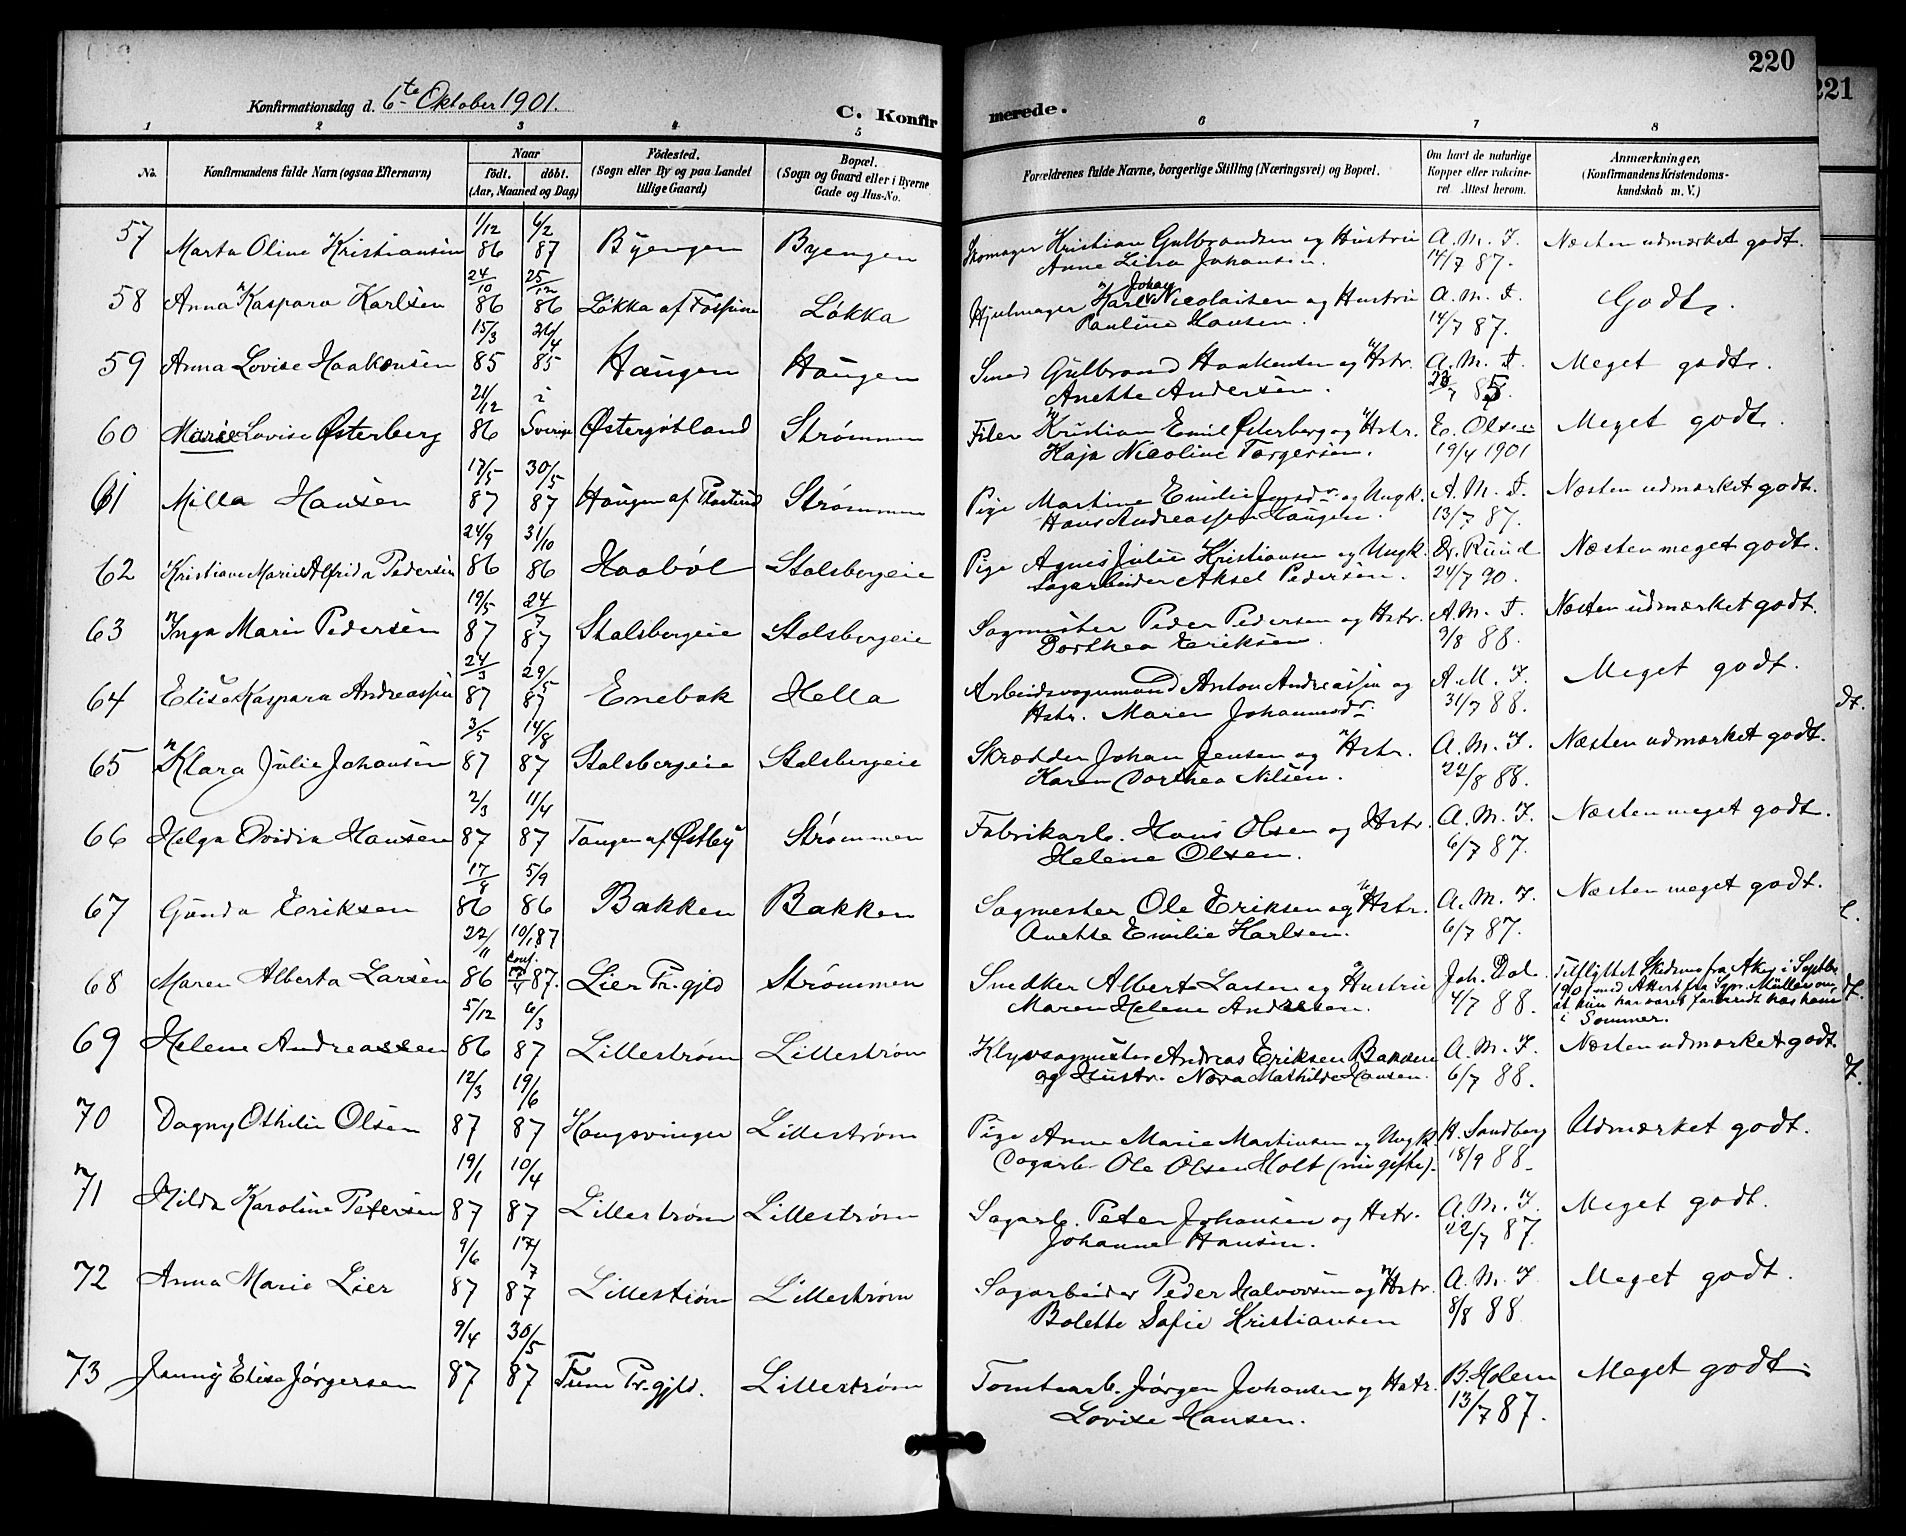 220
221
Konfirmationsdag d. 6te Oktober 1901.
C. Konfirmerede.
1 2 3 4 5 6 7 8
No. Konfirmandens fulde Navn (ogsaa Efternavn) Naar født. døbt. (Aar, Maaned og Dag) Fødested. (Sogn eller By og paa Landet tillige Gaard) Bopæl. (Sogn og Gaard eller i Byerne Gade og Hus-No. Forældrenes fulde Navne, borgerlige Stilling (Næringsvei) og Bopæl. Om havt de naturlige Kopper eller vaccineret Attest herom. Anmærkninger. (Konfirmandens Kristendomskundskab m. V.)
57 Marta Oline Kristiansen 1/12 86 6/2 87 Byengen Byengen Skomager Kristian Gulbrandsen og Hustru A. M. F. Næsten udmærket godt.
Anne Lina Johansen. 14/7 87.
58 Anna Kaspara Karlsen 24/10 86 25/12 86 Løkka af Fossum Løkka Hjulmager Karl Johan Nicolaisen og Hustru A. M. F. Godt.
Pauline Hansen. 14/7 87.
59 Anna Lovise Haakensen 15/3 85 26/4 85 Haugen Haugen Smed Gulbrand Haakensen og Hstr. A. M. F. Meget godt.
Anette Andersen. 85.
60 Marie Lovise Østerberg 21/12 86 i Sverige Østergötland Strømmen Filer Kristian Emil Østerberg og Hstr. E. Olsen Meget godt.
Kaja Nicoline Torgersen. 19/4 1901
61 Milla Hansen 17/5 87 30/5 87 Haugen af Strømmen Pige Martine Emilie og Ungk. A. M. F. Næsten udmærket godt.
Hans Andreassen Haugen. 13/7 87.
62 Kristiane Marie Alfrida Pedersen 24/9 86 31/10 86 Haabøl Stalsbergeie Pige Agnes Julie Kristiansen og Ungk. Dr. Ruud Næsten meget godt.
Sagarbeider Aksel Pedersen. 24/7 90.
63 Inga Marie Pedersen 19/5 87 24/7 87 Stalsbergeie Stalsbergeie Sagmester Peder Pedersen og Hstr. A. M. F. Næsten udmærket godt.
Dorthea Eriksen. 9/8 88.
64 Elise Kaspara Andreassen 24/3 87 29/5 87 Enebak Hella Arbeidsvognmand Anton Andreassen og A. M. F. Meget godt.
Hstr. Maren Johannesdr. 31/7 88.
65 Klara Julie Johansen 3/5 87 14/8 87 Stalsbergeie Stalsbergeie Skrædder Johan Jensen og Hstr. A. M. F. Næsten udmærket godt.
Karen Dorthea Nilsen. 22/8 88.
66 Helga Ovidia Hansen 2/3 87 11/4 87 Tangen af Østby Strømmen Fabrikarb. Hans Olsen og Hstr. A. M. F. Næsten meget godt.
Helene Olsen. 6/7 87.
67 Gunda Eriksen 17/8 86 5/9 86 Bakken Bakken Sagmester Ole Eriksen og Hstr. A. M. F. Næsten meget godt.
Anette Emilie Karlsen. 6/7 87.
68 Maren Alberta Larsen 22/11 86 10/1 87 87. Lier Pr.gjld Strømmen Snedker Albert Larsen og Hustru Joh. Dal. Tilflyttet Skedsmo fra Aker i Septbr
Maren Helene Andersen. 4/7 88. 1901 med Attest fra Sgpr. Müller om,
at hun har været forberedt hos ham
i Sommer.
69 Helene Andreassen 5/12 86 6/3 87 Lillestrøm Lillestrøm Klyvsagmester Andreas Eriksen Bakken A. M. F. Næsten udmærket godt
og Hustr. Nora Mathilde Hansen. 6/7 88.
70 Dagny Othilie Olsen 12/3 87 19/6 87 Kongsvinger Lillestrøm Pige Anne Marie Martinsen og Ungk. H. Sandberg Udmærket godt.
Dagarb. Ole Olsen Holt (nu gifte). 18/9 88.
71 Hilda Karoline Petersen 19/1 87 10/4 87 Lillestrøm Lillestrøm Sagarb. Peter Johansen og Hstr. A. M. F. Meget godt.
Johanne Hansen. 22/7 87.
72 Anna Marie Lier 9/6 87 17/7 87 Lillestrøm Lillestrøm Sagarbeider Peder Halvorsen og Hstr. A. M. F. Meget godt.
Bolette Sofie Kristiansen 8/8 88
73 Janny Elise Jørgensen 9/4 87 30/5 87 Pr.gjld. Lillestrøm Tomtearb. Jørgen Johansen og Hstr. B. Holem Meget godt.
Lovise Hansen. 13/7 87.